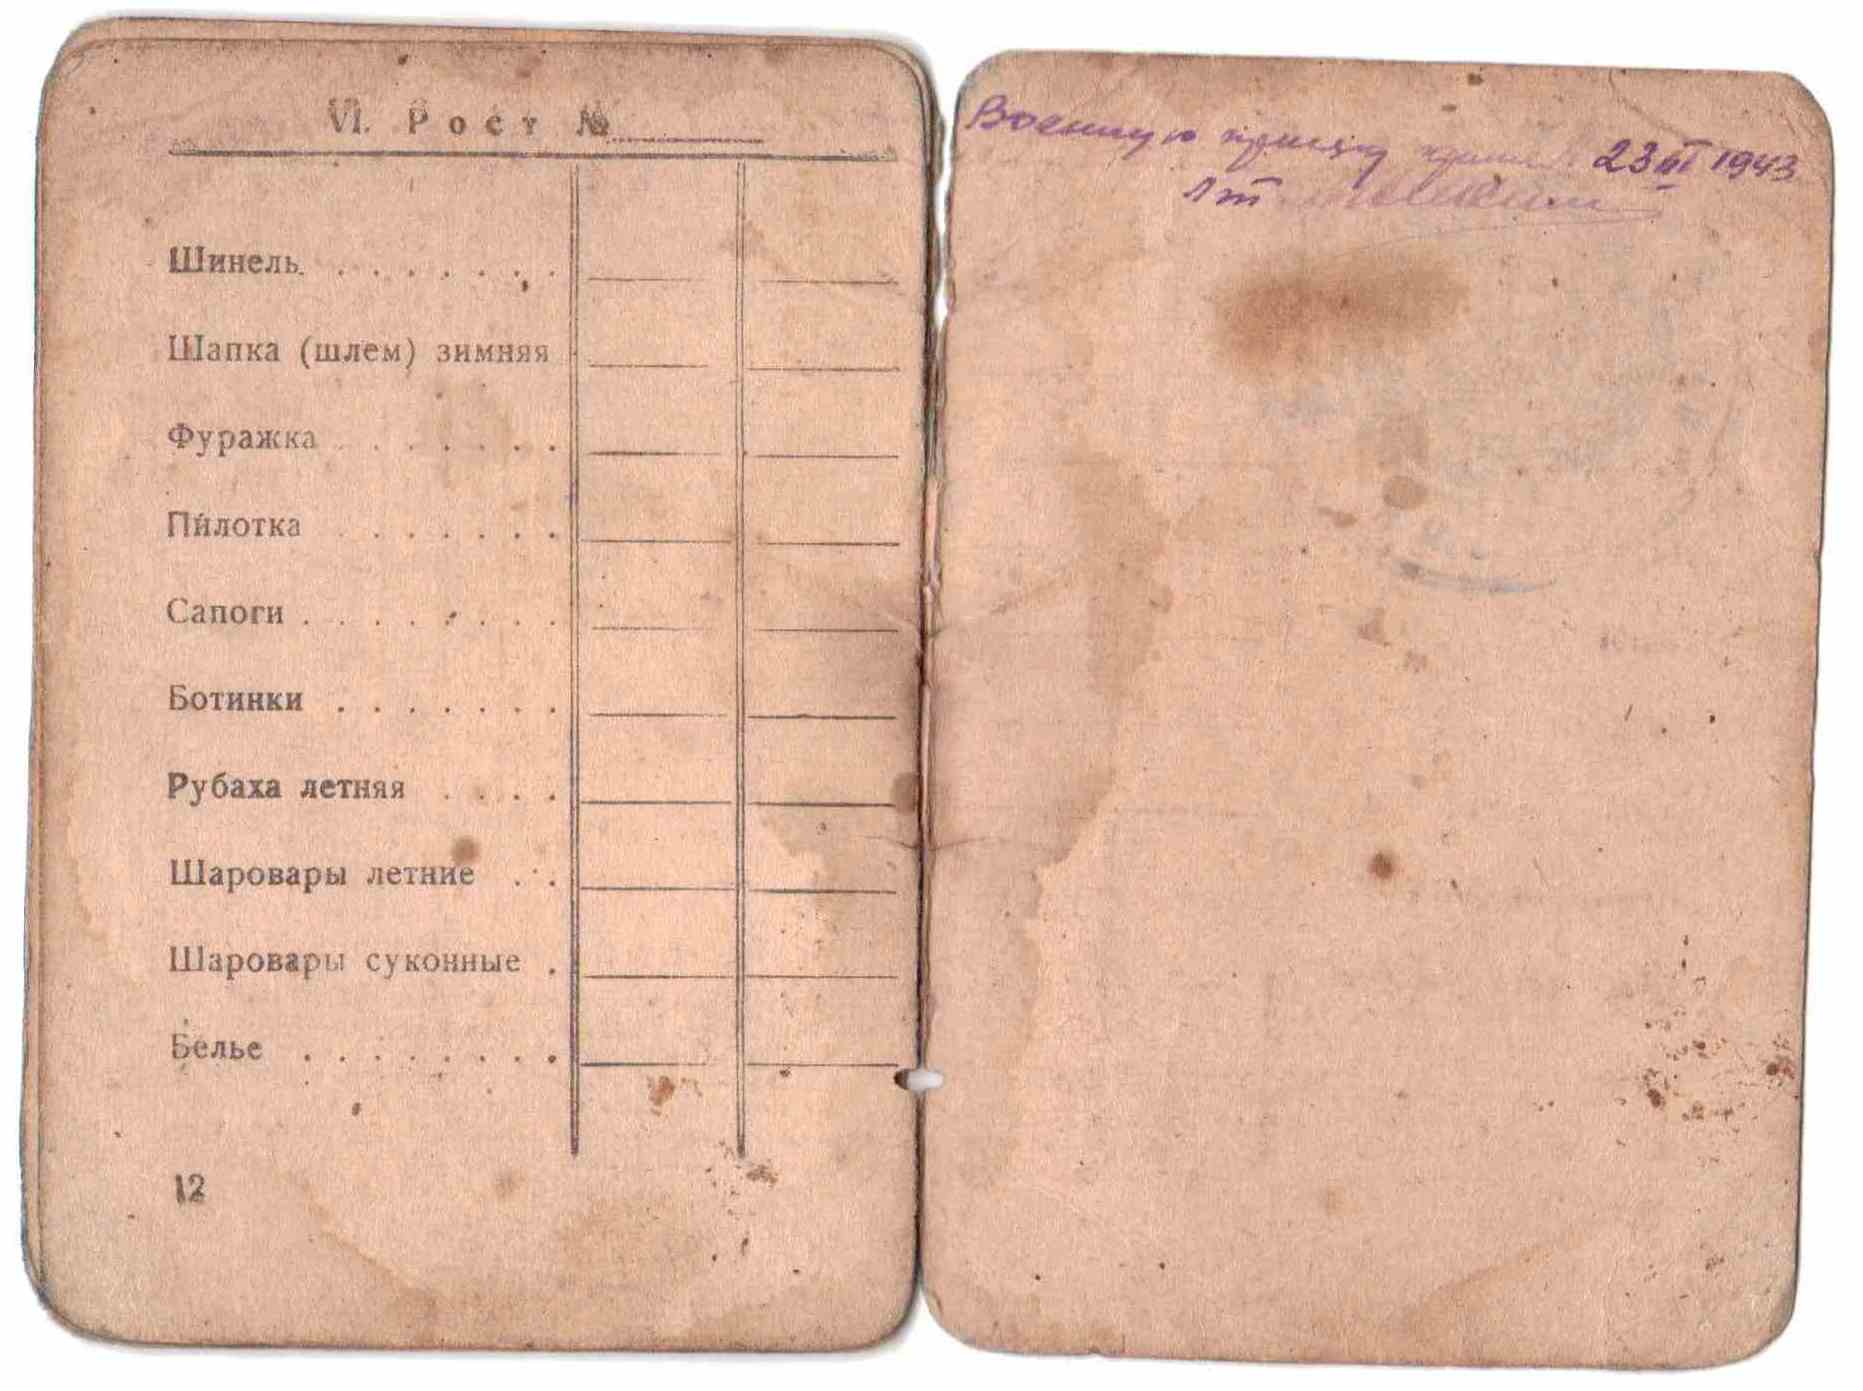 VI. Рост №
Шинель
Шапка (шлем) зимняя
Фуражка
Пилотка
Сапоги
Ботинки
Рубаха летняя
Шаровары летние
Шаровары суконные
Белье
12
Военную присягу 23 III 1943
Лт